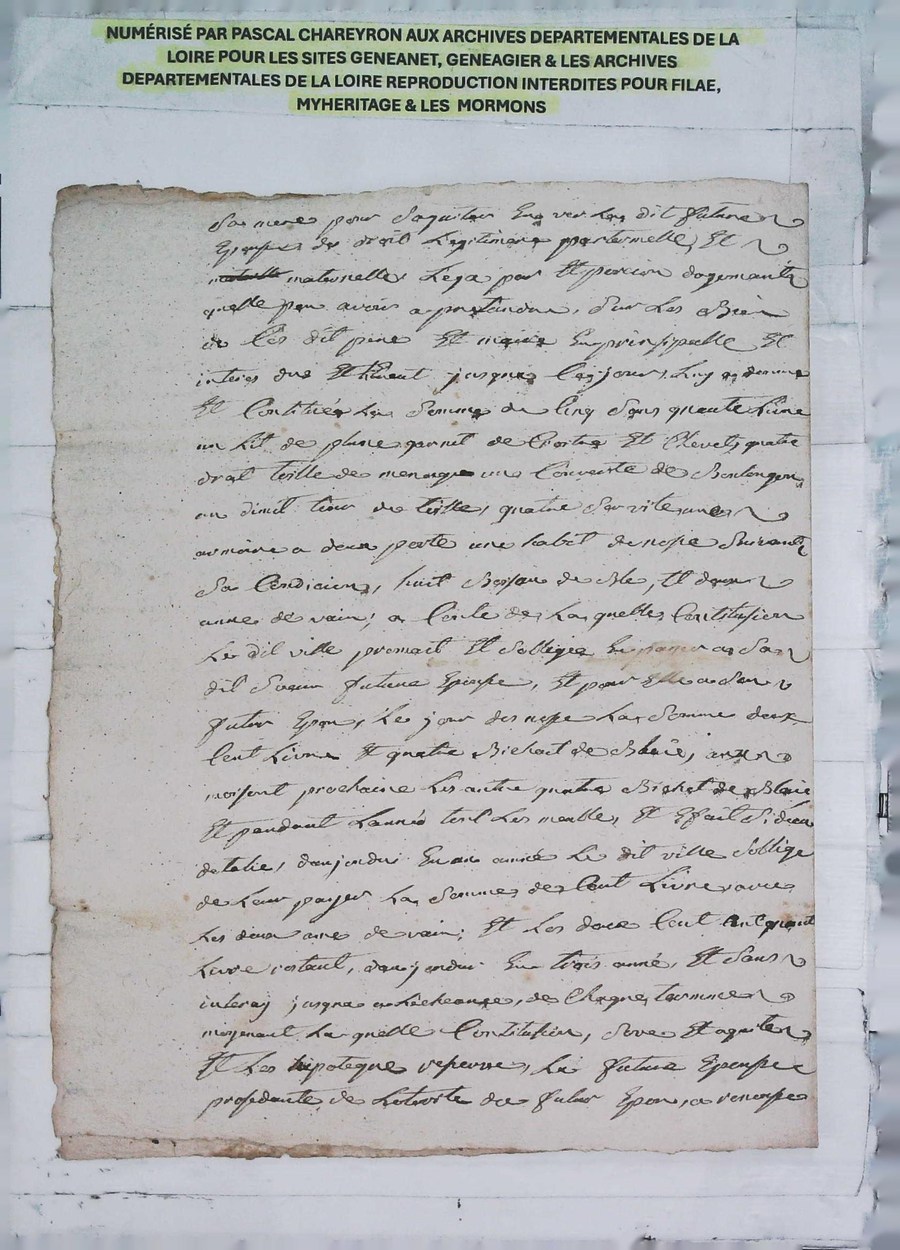 NUMÉRISÉ PAR PASCAL CHAREYRON AUX ARCHIVES DEPARTEMENTALES DE LA
LOIRE POUR LES SITES GENEANET, GENEAGIER & LES ARCHIVES
DEPARTEMENTALES DE LA LOIRE REPRODUCTION INTERDITES POUR FILAE,
MYHERITAGE & LES MORMONS
Sa mere pour Saquiter Enver Las dit future
Epouse des droit Legitimaire paternelle, Et
maternelles Lega par Et porcion dogemants
quelle peu avoir a pretandre, Sur Les Bien
de Ces dit pere Et maire En prinsippalle Et
interes due Et jusques Cejour, Luy a donné
Et Contitués La Somme de Cinq Sans quaute Livre
un Lit de plume garnit de Coitre Et Clevet, quatre
drat toille de menage une Couverte de Boulongne,
un dimit tour de toille, quatre Servite une
armoire a deux porte une habit de nopse Suivant
Sa Condicion, huit de Ble, Et deux
anne de vain; a Conte de Laquelle Contitusion
Le dit ville promait Et Soblige En payer a Sa
dit Soeur future Epouse, Et pour Elle a Son
futur Epou, Le jour des nopse La Somme deux
Cent Livre Et quatre Bichait de Blaie, aux
moisont prochaine Les autre quatre Bichet de Blaie
Et pendant Lanné tout Les meuble, Et Effait Sidessu
detalié, daujordui En un année Le dit ville Soblige
de Leur payer La Somme de Cent Livre avec
Les deux anne de vain; Et Les deux Cent
Livre restant, daujordui En trois année, Et Sans
interay jusque a Lecheanse, de Chaque termme
moyenant Laquelle Contitusion, Et aquiter
Et Les hipoteque reserve, La future Epouse
prosedante de Lotorite du futur Epou, a renonse